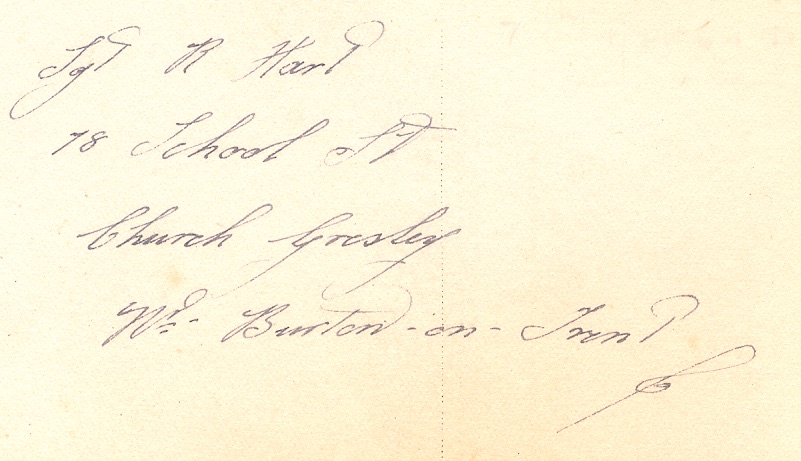 Sgt R Hart
78 School St
Church Gresley
Nr- Burton-on-Trent